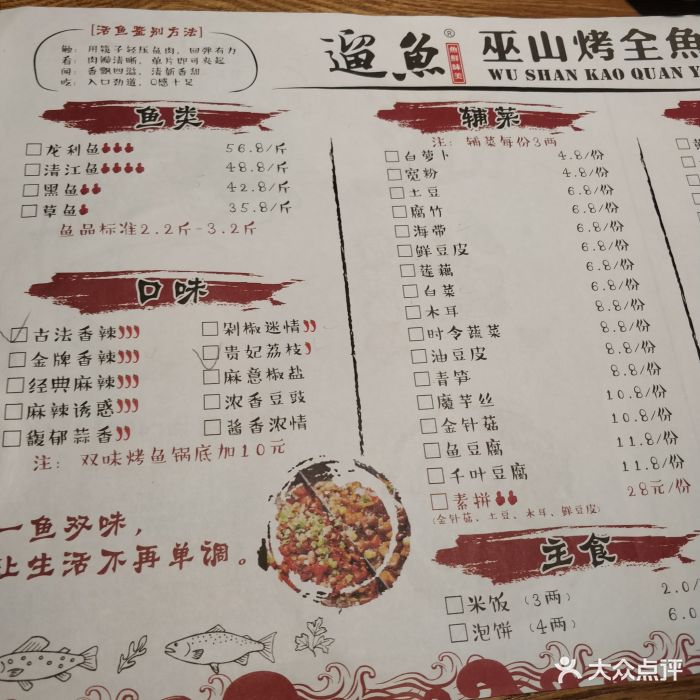 [活鱼鉴别方法]
触: 用筷子轻压鱼肉, 回弹有力
看: 肉瓣清晰, 单片即可夹起
闻: 香飘四溢, 清新香甜
吃: 入口劲道, Q感十足
遛魚®
魚鮮味美
巫山烤全魚
WU SHAN KAO QUAN Y
鱼类
龙利鱼 56.8/斤
清江鱼 48.8/斤
黑鱼 42.8/斤
草鱼 35.8/斤
鱼品标准2.2斤-3.2斤
口味
古法香辣
金牌香辣
经典麻辣
麻辣诱惑
馥郁蒜香
剁椒迷情
贵妃荔枝
麻意椒盐
浓香豆豉
酱香浓情
注: 双味烤鱼锅底加10元
一鱼双味,
让生活不再单调。
辅菜
注: 辅菜每份3两
白萝卜 4.8/份
宽粉 4.8/份
土豆 6.8/份
腐竹 6.8/份
海带 6.8/份
鲜豆皮 6.8/份
莲藕 6.8/份
白菜 6.8/份
木耳 8.8/份
时令蔬菜 8.8/份
油豆皮 8.8/份
青笋 8.8/份
魔芋丝 10.8/份
金针菇 10.8/份
鱼豆腐 11.8/份
千叶豆腐 11.8/份
素拼 28元/份
(金针菇、土豆、木耳、鲜豆皮)
主食
米饭 (3两) 2.0/
泡饼 (4两) 6.0
大众点评